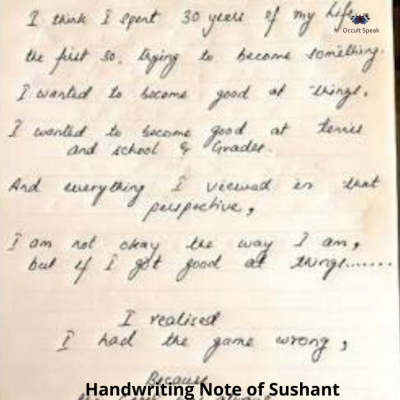 I think I spent 30 years of my life,
Occult Speak
the first 30, trying to become something.
I wanted to become good at things,
I wanted to become good at tennis
and school & Grades.
And everything I viewed in that
perspective,
I am not okay the way I am,
but if I got good at things.......
I realised
I had the game wrong,
Because
Handwriting Note of Sushant